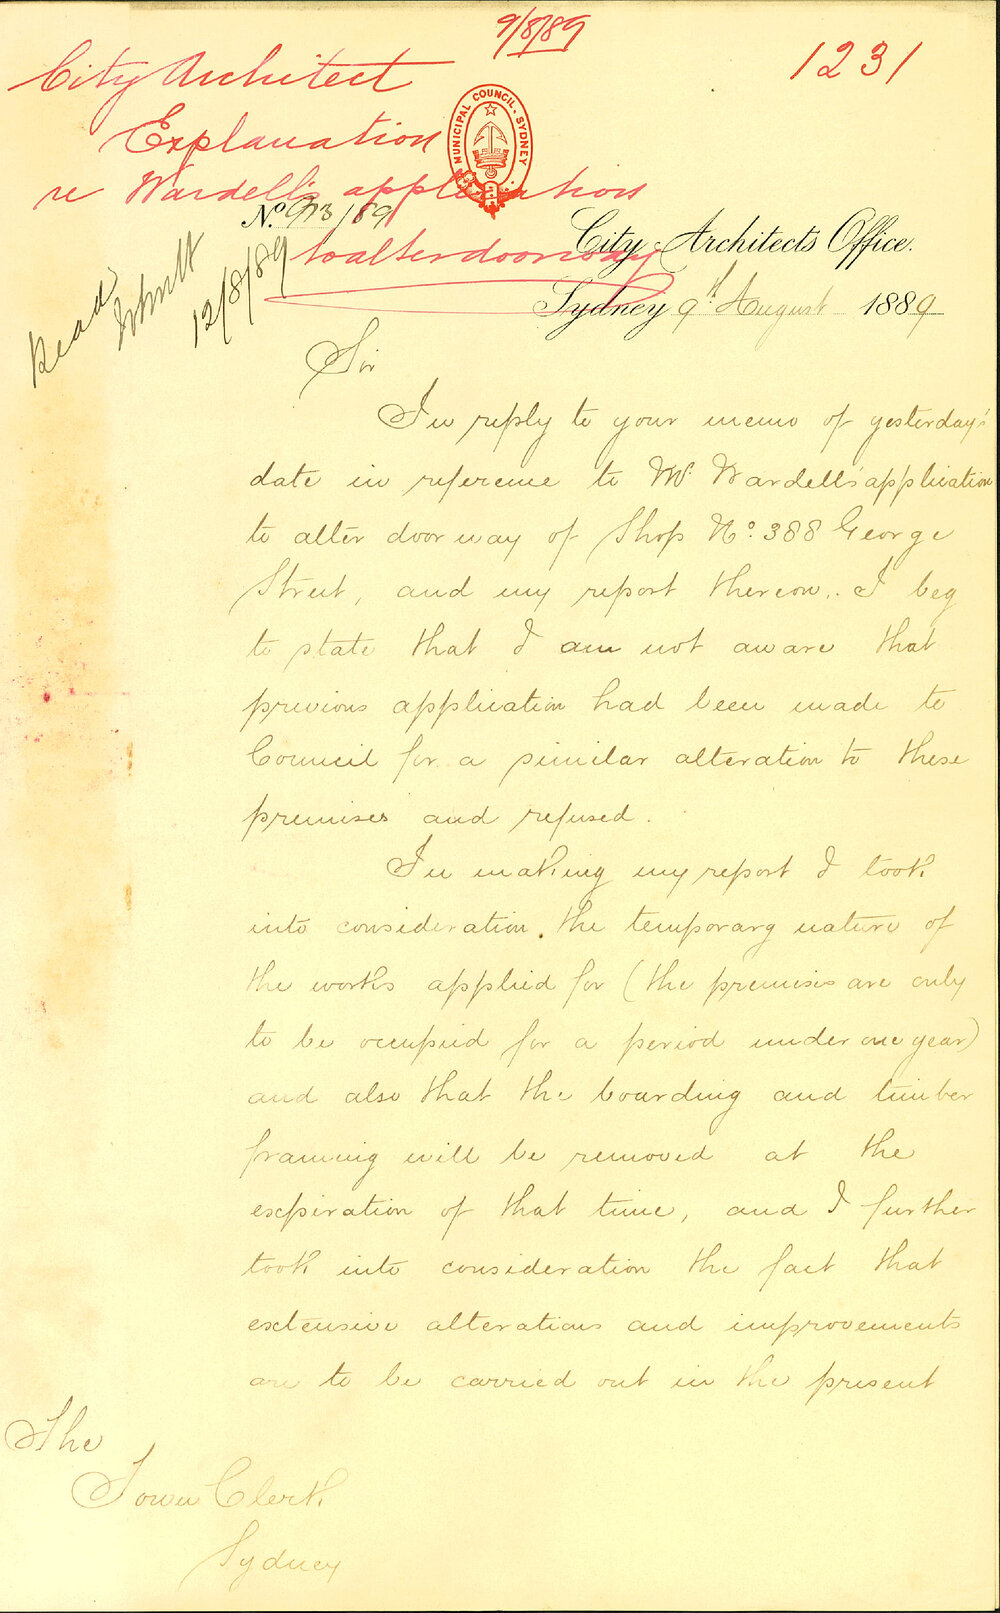 9/8/89
1231
City Architect
Explanation
re Wardell's application
to alter doorway
MUNICIPAL COUNCIL. SYDNEY
No. 973/89
City Architects Office.
Sydney 9th August 1889
Read
12/8/89
Sir
In reply to your memo of yesterday's
date in reference to Mr. Wardell's application
to alter doorway of Shop No. 388 George
Street, and my report thereon, I beg
to state that I am not aware that
previous application had been made to
Council for a similar alteration to these
premises and refused.
In making my report I took
into consideration the temporary nature of
the works applied for (the premises are only
to be occupied for a period under one year)
and also that the boarding and timber
framing will be removed at the
expiration of that time, and I further
took into consideration the fact that
extensive alterations and improvements
are to be carried out in the present
The
Town Clerk
Sydney